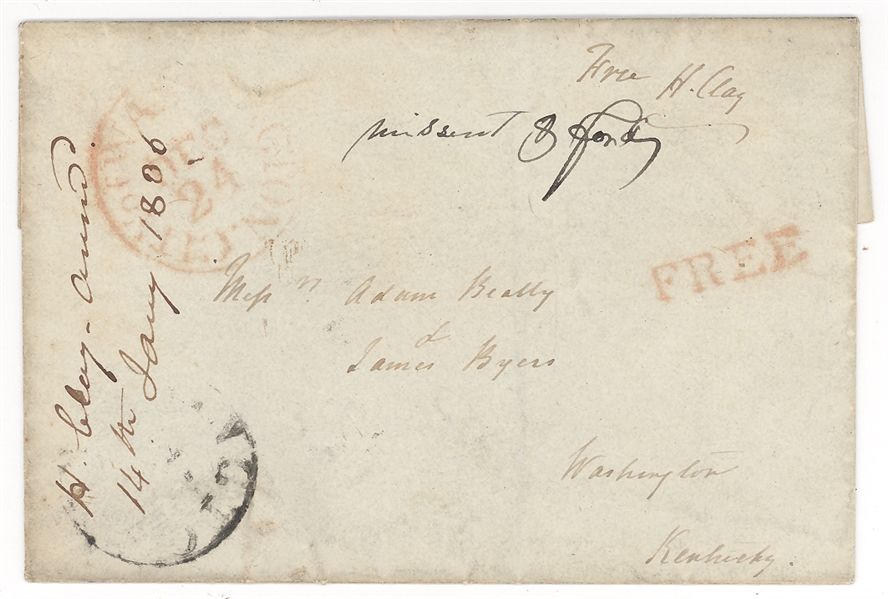 Free H. Clay
missent & ford
FREE
Mess rs Adam Beatty
&
James Byers
Washington
Kentucky.
H. Clay - 
14th Jany 1836
CITY OF WA
DEC
24